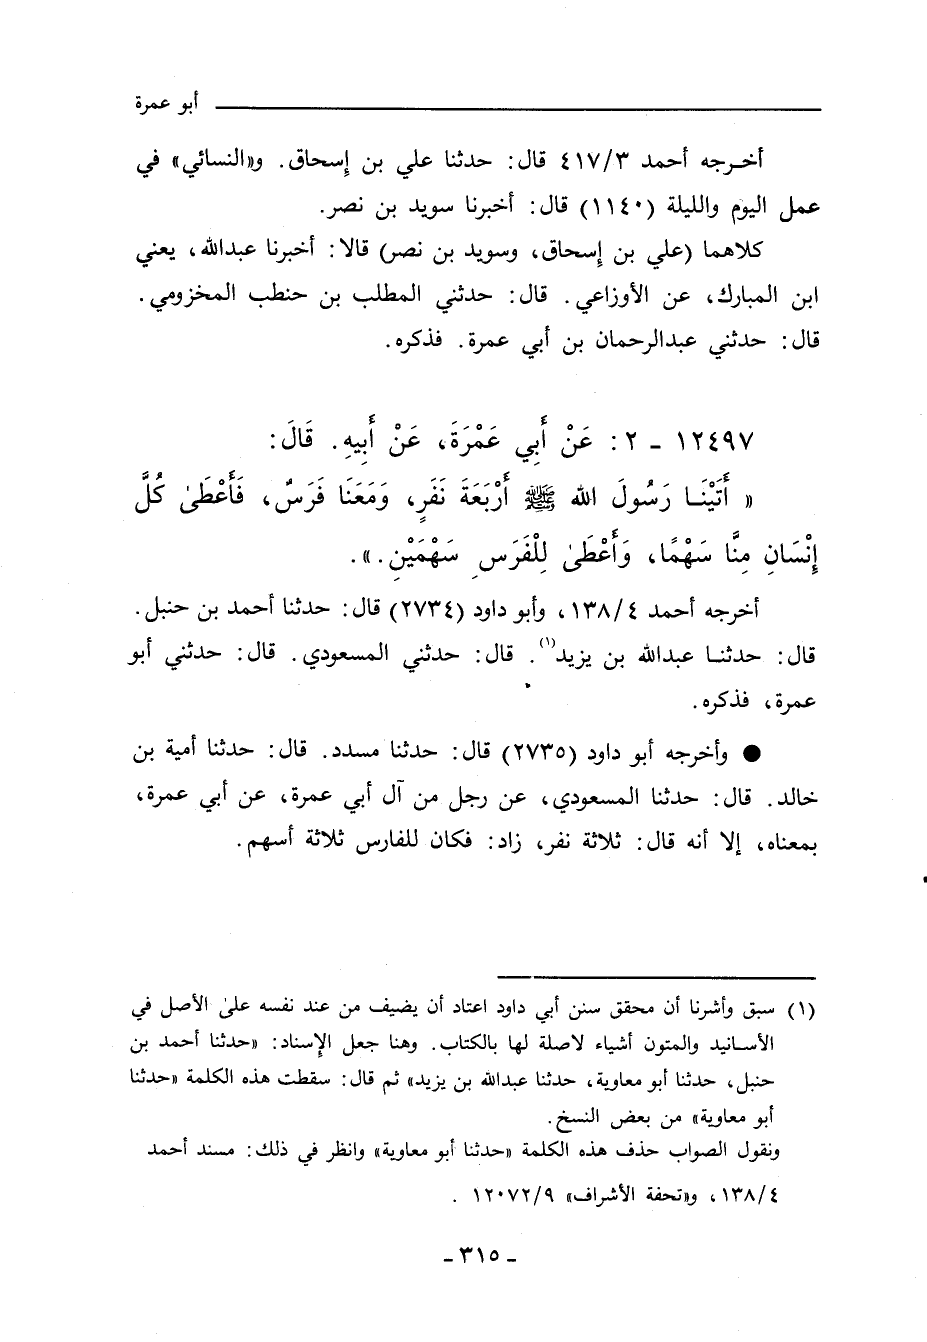 أبو عمرة
أخرجه أحمد ٤١٧/٣ قال: حدثنا علي بن إسحاق. و«النسائي» في
عمل اليوم والليلة (١١٤٠) قال: أخبرنا سويد بن نصر.
كلاهما (علي بن إسحاق، وسويد بن نصر) قالا: أخبرنا عبدالله، يعني
ابن المبارك، عن الأوزاعي. قال: حدثني المطلب بن حنطب المخزومي.
قال: حدثني عبدالرحمان بن أبي عمرة. فذكره.
١٢٤٩٧ ـ ٢ : عَنْ أَبِي عَمْرَةَ، عَنْ أَبِيهِ. قَالَ:
« أَتَيْنَا رَسُولَ الله ﷺ أَرْبَعَةَ نَفَرٍ، وَمَعَنَا فَرَسٌ، فَأَعْطَىٰ كُلَّ
إِنْسَانٍ مِنَّا سَهْمًا، وَأَعْطَىٰ لِلْفَرَسِ سَهْمَيْنِ.».
أخرجه أحمد ١٣٨/٤، وأبو داود (٢٧٣٤) قال: حدثنا أحمد بن حنبل.
قال: حدثنا عبدالله بن يزيد(١). قال: حدثني المسعودي. قال: حدثني أبو
عمرة، فذكره.
● وأخرجه أبو داود (٢٧٣٥) قال: حدثنا مسدد. قال: حدثنا أمية بن
خالد. قال: حدثنا المسعودي، عن رجل من آل أبي عمرة، عن أبي عمرة،
بمعناه، إلا أنه قال: ثلاثة نفر، زاد: فكان للفارس ثلاثة أسهم.
(١) سبق وأشرنا أن محقق سنن أبي داود اعتاد أن يضيف من عند نفسه علىٰ الأصل في
الأسانيد والمتون أشياء لاصلة لها بالكتاب. وهنا جعل الإسناد: «حدثنا أحمد بن
حنبل، حدثنا أبو معاوية، حدثنا عبدالله بن يزيد» ثم قال: سقطت هذه الكلمة «حدثنا
أبو معاوية» من بعض النسخ.
ونقول الصواب حذف هذه الكلمة «حدثنا أبو معاوية» وانظر في ذلك: مسند أحمد
١٣٨/٤، و«تحفة الأشراف» ١٢٠٧٢/٩ .
ـ ٣١٥ ـ